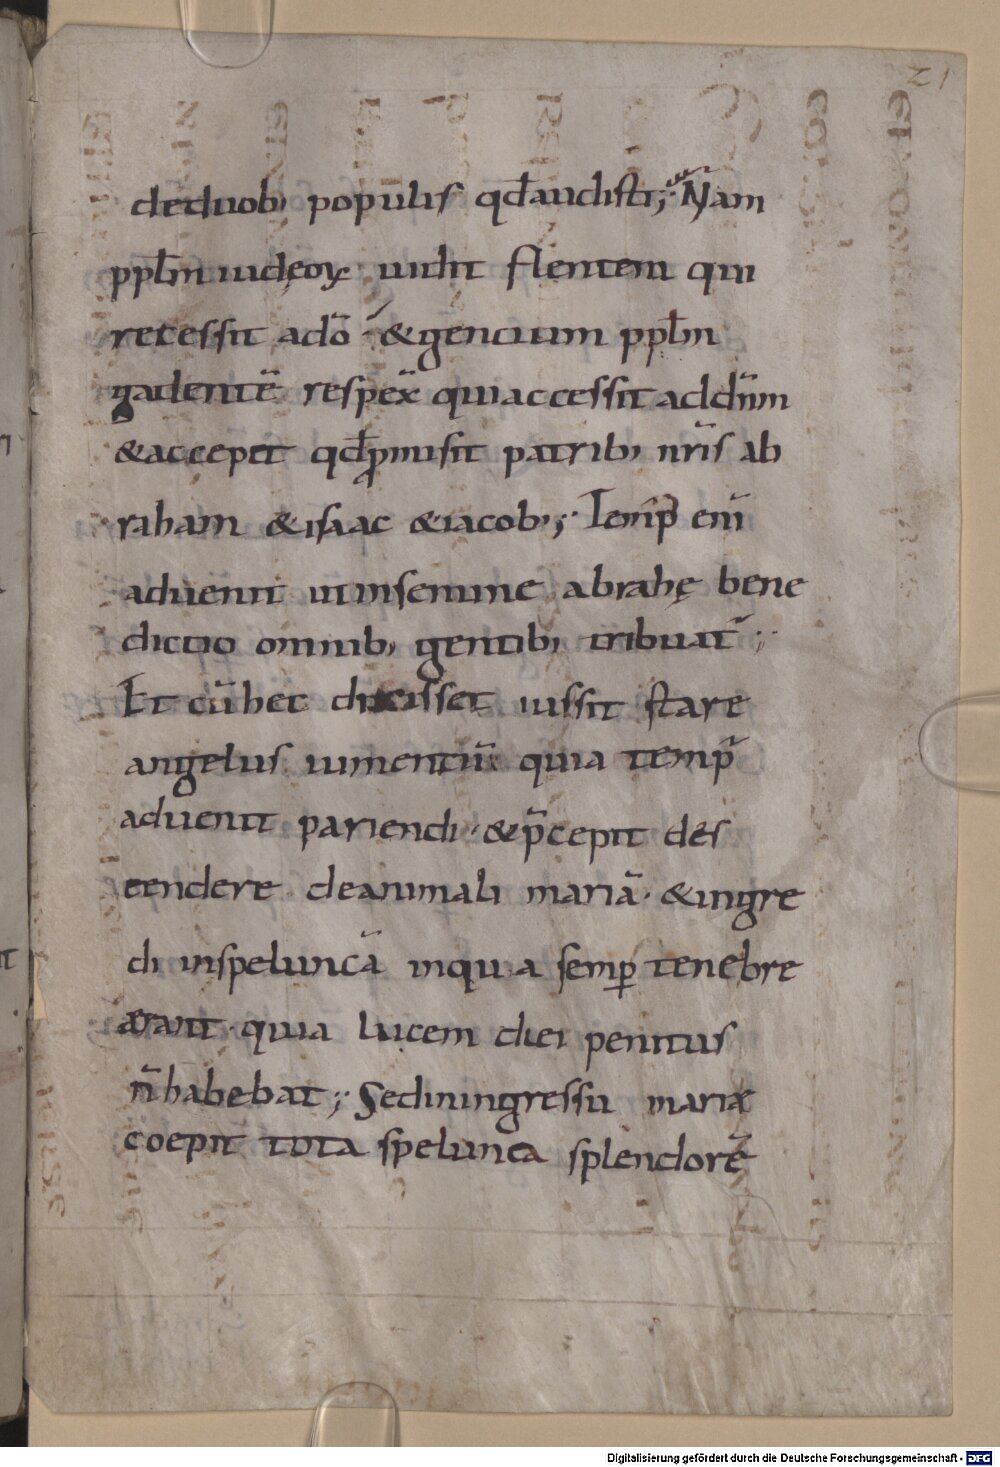 21
deduob; populis qđ audisti;· Nam
ppl̄m iudęoꝝ uidit flentem qui
recessit adō · & gentium ppl̄m
gadentē respex̄ qui accessit addn̄m
& accepit qđ ꝓmisit patrib; nr̄is ab
raham & isaac & iacob;;· Temp̄ eni̅
aduenit ut insemine abrahę bene
dictio omnib; gentib; tribuat᷑ ;·
Et cū hec dixisset iussit stare
angelus iumentū quia temp̄
aduenit pariendi · & p̄cepit des
cendere de animali mariā · & ingre
di inspeluncā inqua semꝑ tenebre
erant · quia lucem diei penitus
n̄ habebat ;· Sed in ingressu mariæ
coepit tota spelunca splendorē
Digitalisierung gefördert durch die Deutsche Forschungsgemeinschaft - DFG